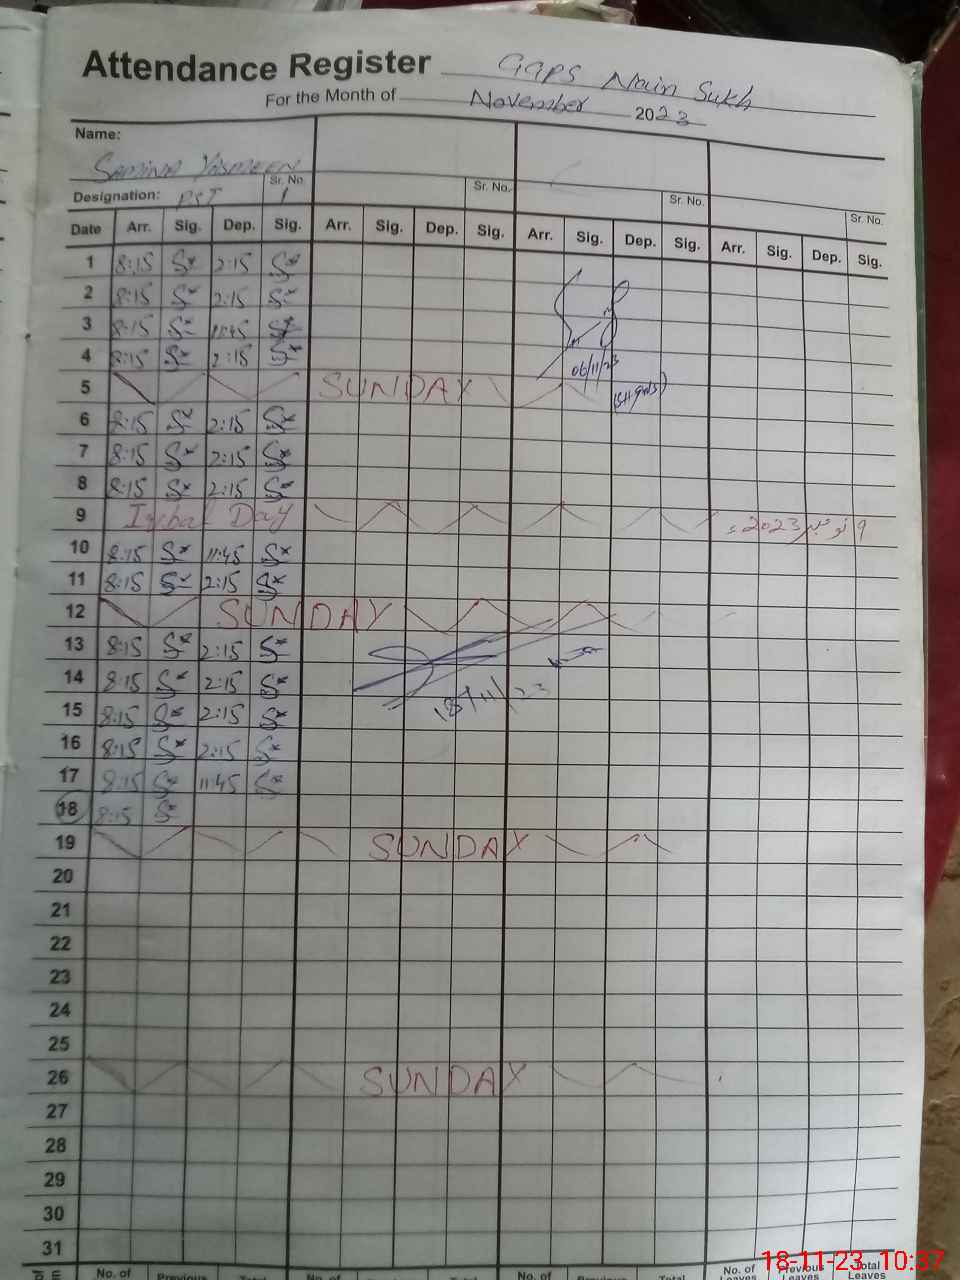 Attendance Register GGPS Nain Sukh
For the Month of November 2023
Name:
Samina Yasmeen
Sr. No. Sr. No. Sr. No. Sr. No.
Designation: PST 1
Date Arr. Sig. Dep. Sig. Arr. Sig. Dep. Sig. Arr. Sig. Dep. Sig. Arr. Sig. Dep. Sig.
1 8:15 2:15
2 8:15 2:15
3 8:15 11:45
4 8:15 2:15
06/11/23
5 SUNDAY
6 8:15 2:15
7 8:15 2:15
8 8:15 2:15
9 Iqbal Day 9 نومبر 2023ء
10 8:15 11:45
11 8:15 2:15
12 SUNDAY
13 8:15 2:15
14 8:15 2:15
18/11/23
15 8:15 2:15
16 8:15 2:15
17 8:15 11:45
18 8:15
19 SUNDAY
20
21
22
23
24
25
26 SUNDAY
27
28
29
30
31
18-11-23 10:37
No. of Previous Total No. of Previous Total No. of Previous Total No. of Leaves Previous Leaves Total Leaves